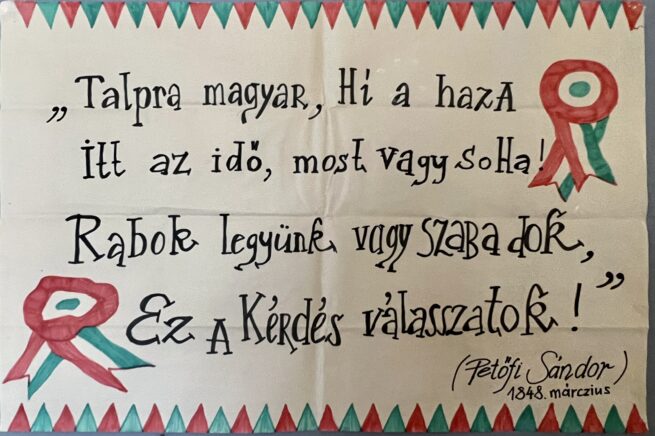 „Talpra magyar, Hí a hazA
Itt az idő, most vagy soHa!
Rabok legyünk vagy szabadok,
Ez A Kérdés válasszatok!”
(Petőfi Sándor)
1848. márczius